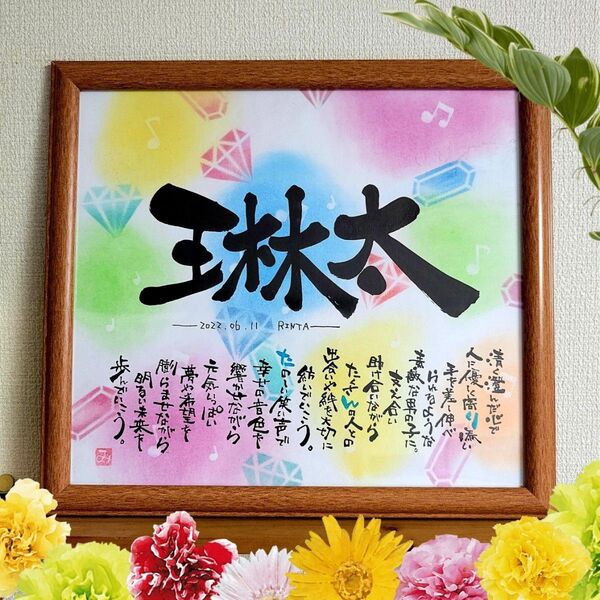 琳太
2022.06.11 RINTA
清く澄んだ心で
人に優しく寄り添い
手を差し伸べ
られるような
素敵な男の子に。
支え合い
助け合いながら
たくさんの人との
出会いや絆を大切に
紡いでいこう。
たのしい笑い声で
幸せの音色を
響かせながら
元気いっぱい
夢や希望を
膨らませながら
明るい未来を
歩んでいこう。